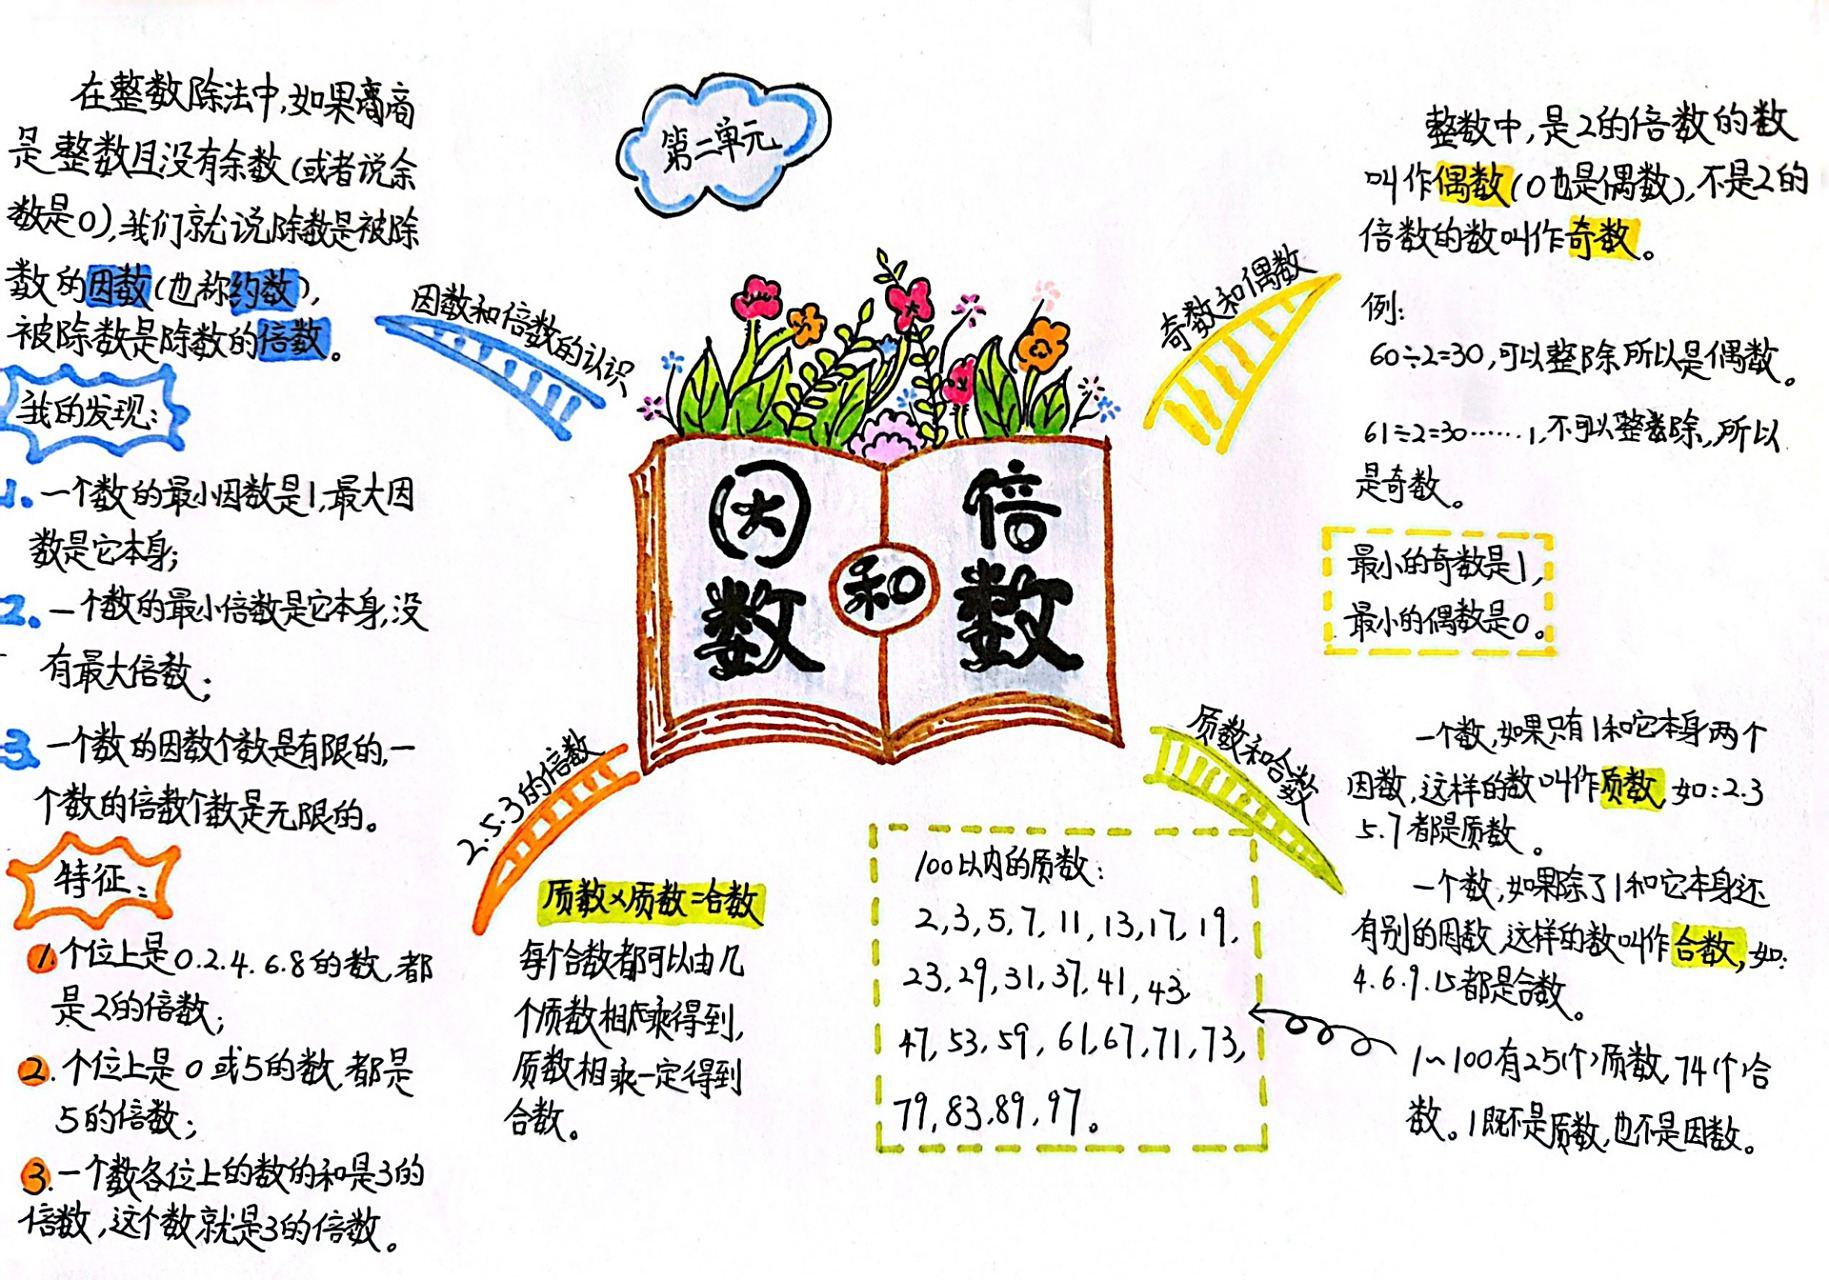 第二单元
因数
和
倍数
因数和倍数的认识
在整数除法中,如果商
是整数且没有余数(或者说余
数是0),我们就说除数是被除
数的因数(也称约数),
被除数是除数的倍数。
我的发现:
1.一个数的最小因数是1,最大因
数是它本身;
2.一个数的最小倍数是它本身,没
有最大倍数;
3.一个数的因数个数是有限的,一
个数的倍数个数是无限的。
2.5.3的倍数
特征:
1.个位上是0.2.4.6.8的数,都
是2的倍数;
2.个位上是0或5的数,都是
5的倍数;
3.一个数各位上的数的和是3的
倍数,这个数就是3的倍数。
奇数和偶数
整数中,是2的倍数的数
叫作偶数(0也是偶数),不是2的
倍数的数叫作奇数。
例:
60÷2=30,可以整除所以是偶数。
61÷2=30……1,不可以整除,所以
是奇数。
最小的奇数是1,
最小的偶数是0。
质数和合数
一个数,如果只有1和它本身两个
因数,这样的数叫作质数,如:2.3
5.7都是质数。
一个数,如果除了1和它本身还
有别的因数,这样的数叫作合数,如:
4.6.9.15都是合数。
1~100有25(个)质数,74(个)合
数。1既不是质数,也不是因数。
100以内的质数:
2,3,5,7,11,13,17,19,
23,29,31,37,41,43,
47,53,59,61,67,71,73,
79,83,89,97。
质数×质数=合数
每个合数都可以由几
个质数相乘得到,
质数相乘一定得到
合数。